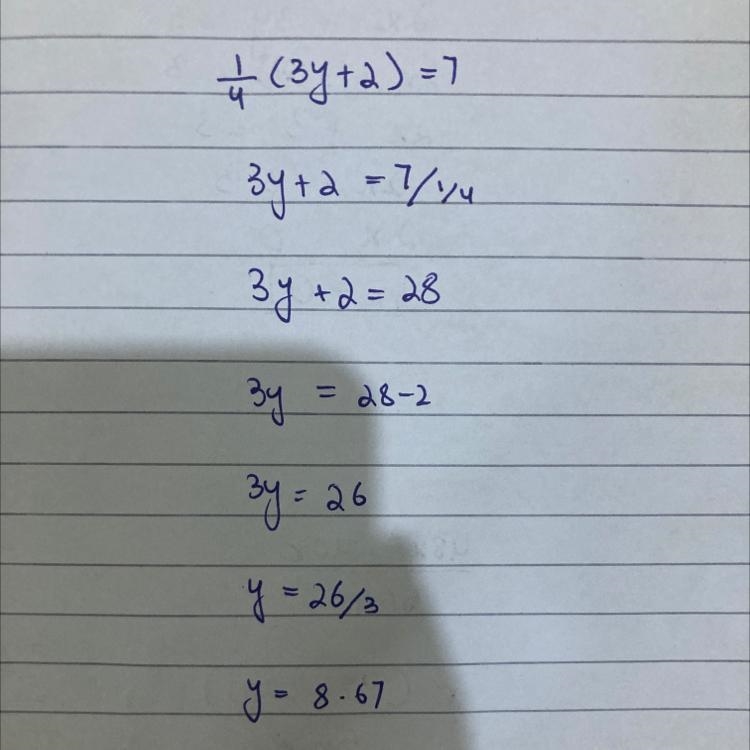 1/4 (3y+2) = 7
3y+2 = 7/1/4
3y + 2 = 28
3y = 28-2
3y = 26
y = 26/3
y = 8.67